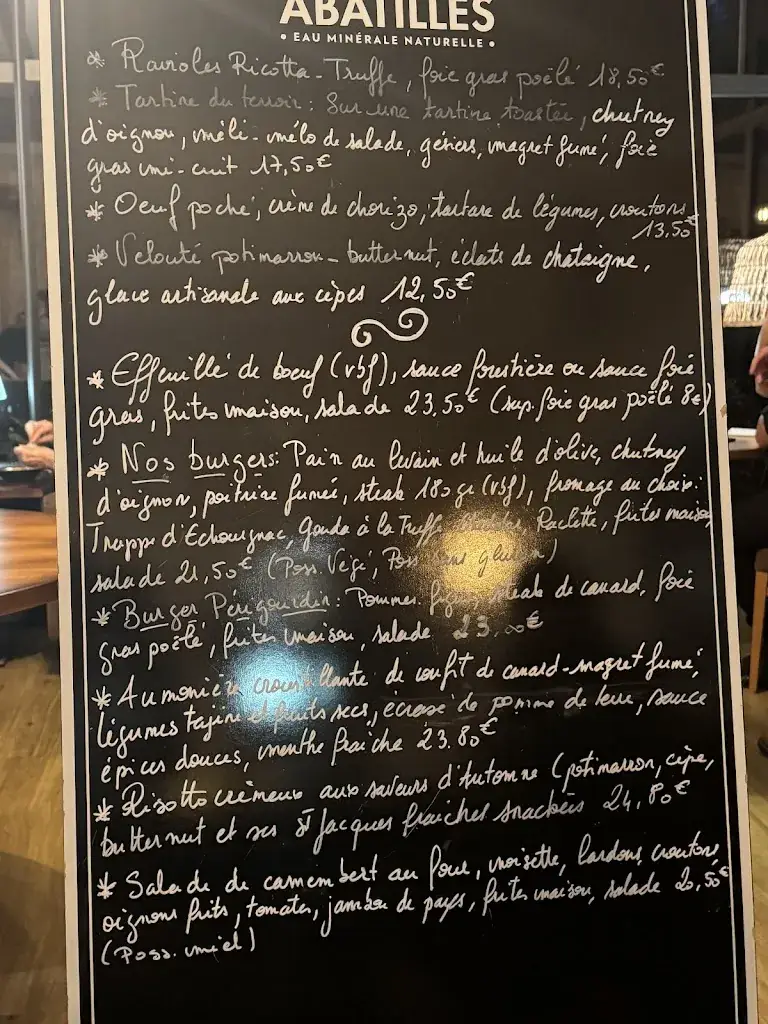 ABATILLES
• EAU MINÉRALE NATURELLE •
* Ravioles Ricotta - Truffe, foie gras poêlé 18,50€
* Tartine du terroir : Sur une tartine toastée, chutney
d'oignon, méli-mélo de salade, gésiers, magret fumé, foie
gras mi-cuit 17,50€
* Oeuf poché, crème de chorizo, tartare de légumes, croutons
13,50€
* Velouté potimarron - butternut, éclats de chataigne,
glace artisanale aux cèpes 12,50€
* Effeuillé de boeuf (vbf), sauce forestière ou sauce foie
gras, frites maison, salade 23,50€ (sup. foie gras poêlé 8€)
* Nos burgers : Pain au levain et huile d'olive, chutney
d'oignon, poitrine fumée, steak 180 gr (vbf), fromage au choix :
Trappe d'Echourgnac, Gouda à la Truffe, Raclette, frites maison,
salade 21,50€ (Poss. Végé, Poss sans gluten)
* Burger Périgourdin : Pommes, steak de canard, foie
gras poêlé, frites maison, salade 23,00€
* Aumonière croustillante de confit de canard - magret fumé,
légumes tajine et fruits secs, écrasé de pomme de terre, sauce
épices douces, menthe fraîche 23.80€
* Risotto crèmeux aux saveurs d'Automne (potimarron, cèpe,
butternut et ses St Jacques fraiches snackées 24,80€
* Salade de camembert au four, noisette, lardons, croutons,
oignons frits, tomates, jambon de pays, frites maison, salade
(Poss. miel)